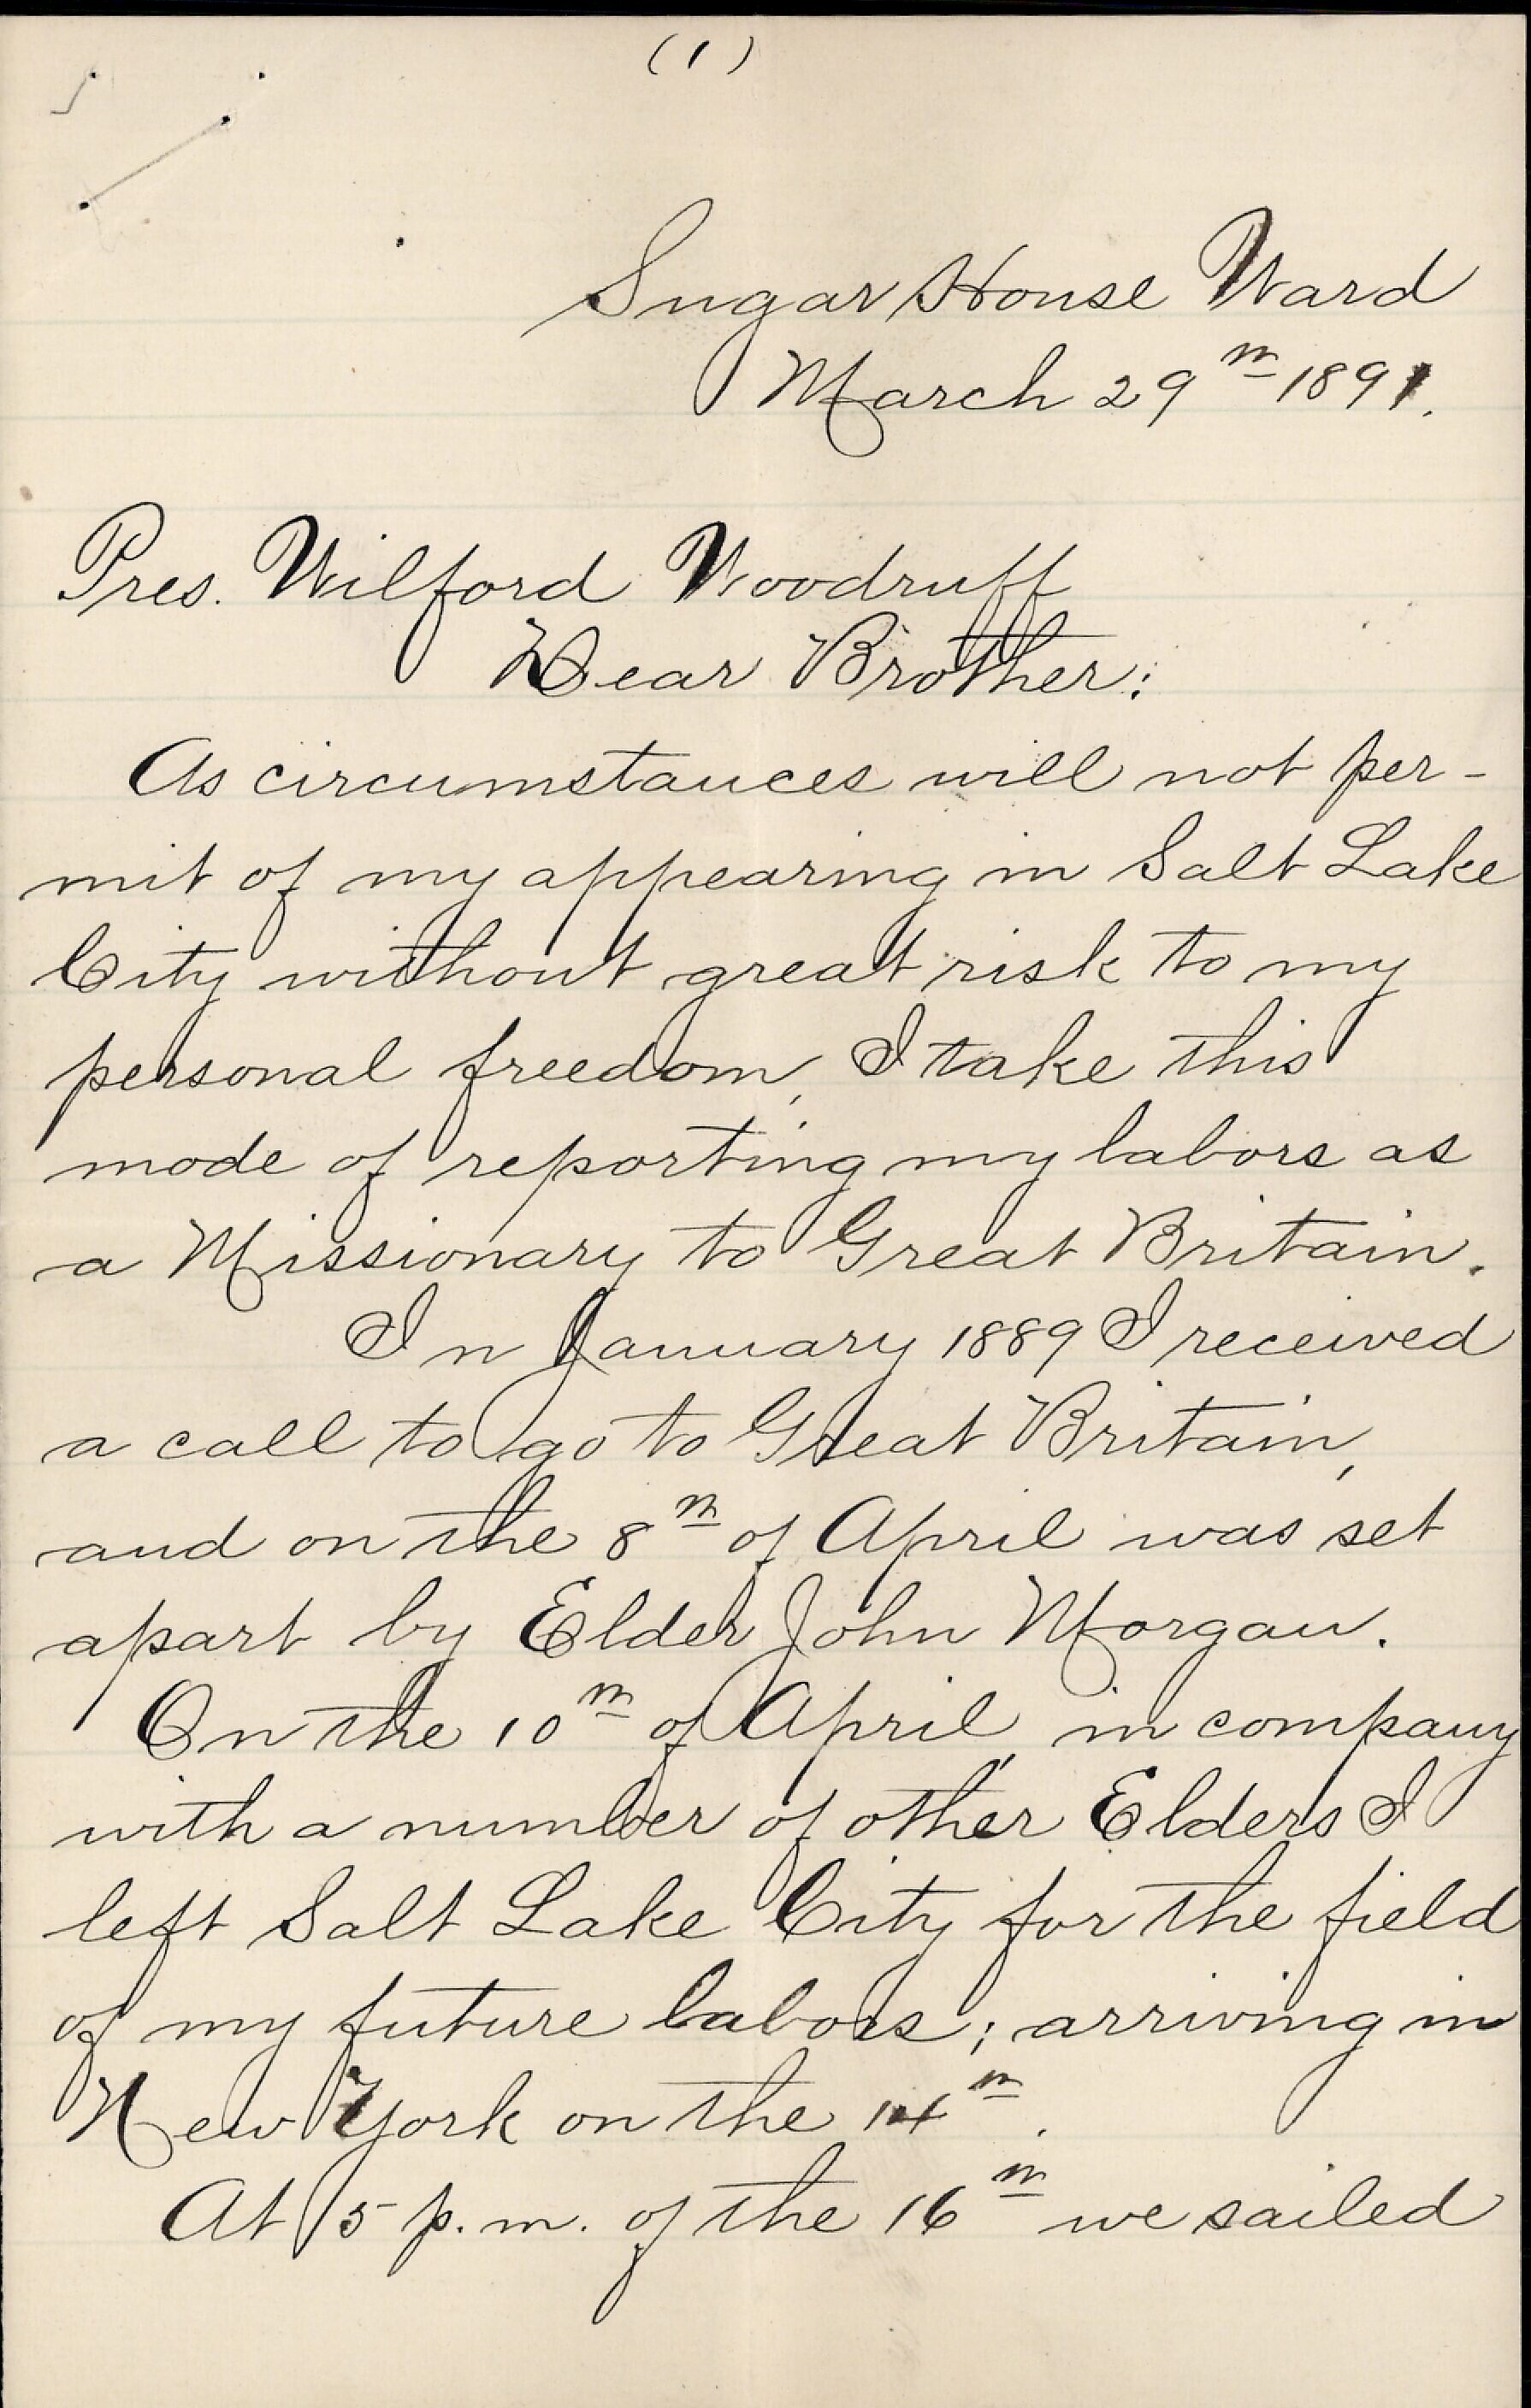 (1)
Sugar House Ward
March 29th 1891.
Pres. Wilford Woodruff
Dear Brother:
As circumstances will not per-
mit of my appearing in Salt Lake
City without great risk to my
personal freedom, I take this
mode of reporting my labors as
a Missionary to Great Britain.
In January 1889 I received
a call to go to Great Britain,
and on the 8th of April was set
apart by Elder John Morgan.
On the 10th of April, in company
with a number of other Elders I
left Salt Lake City for the field
of my future labors; arriving in
New York on the 14th.
At 5 p.m. of the 16th we sailed